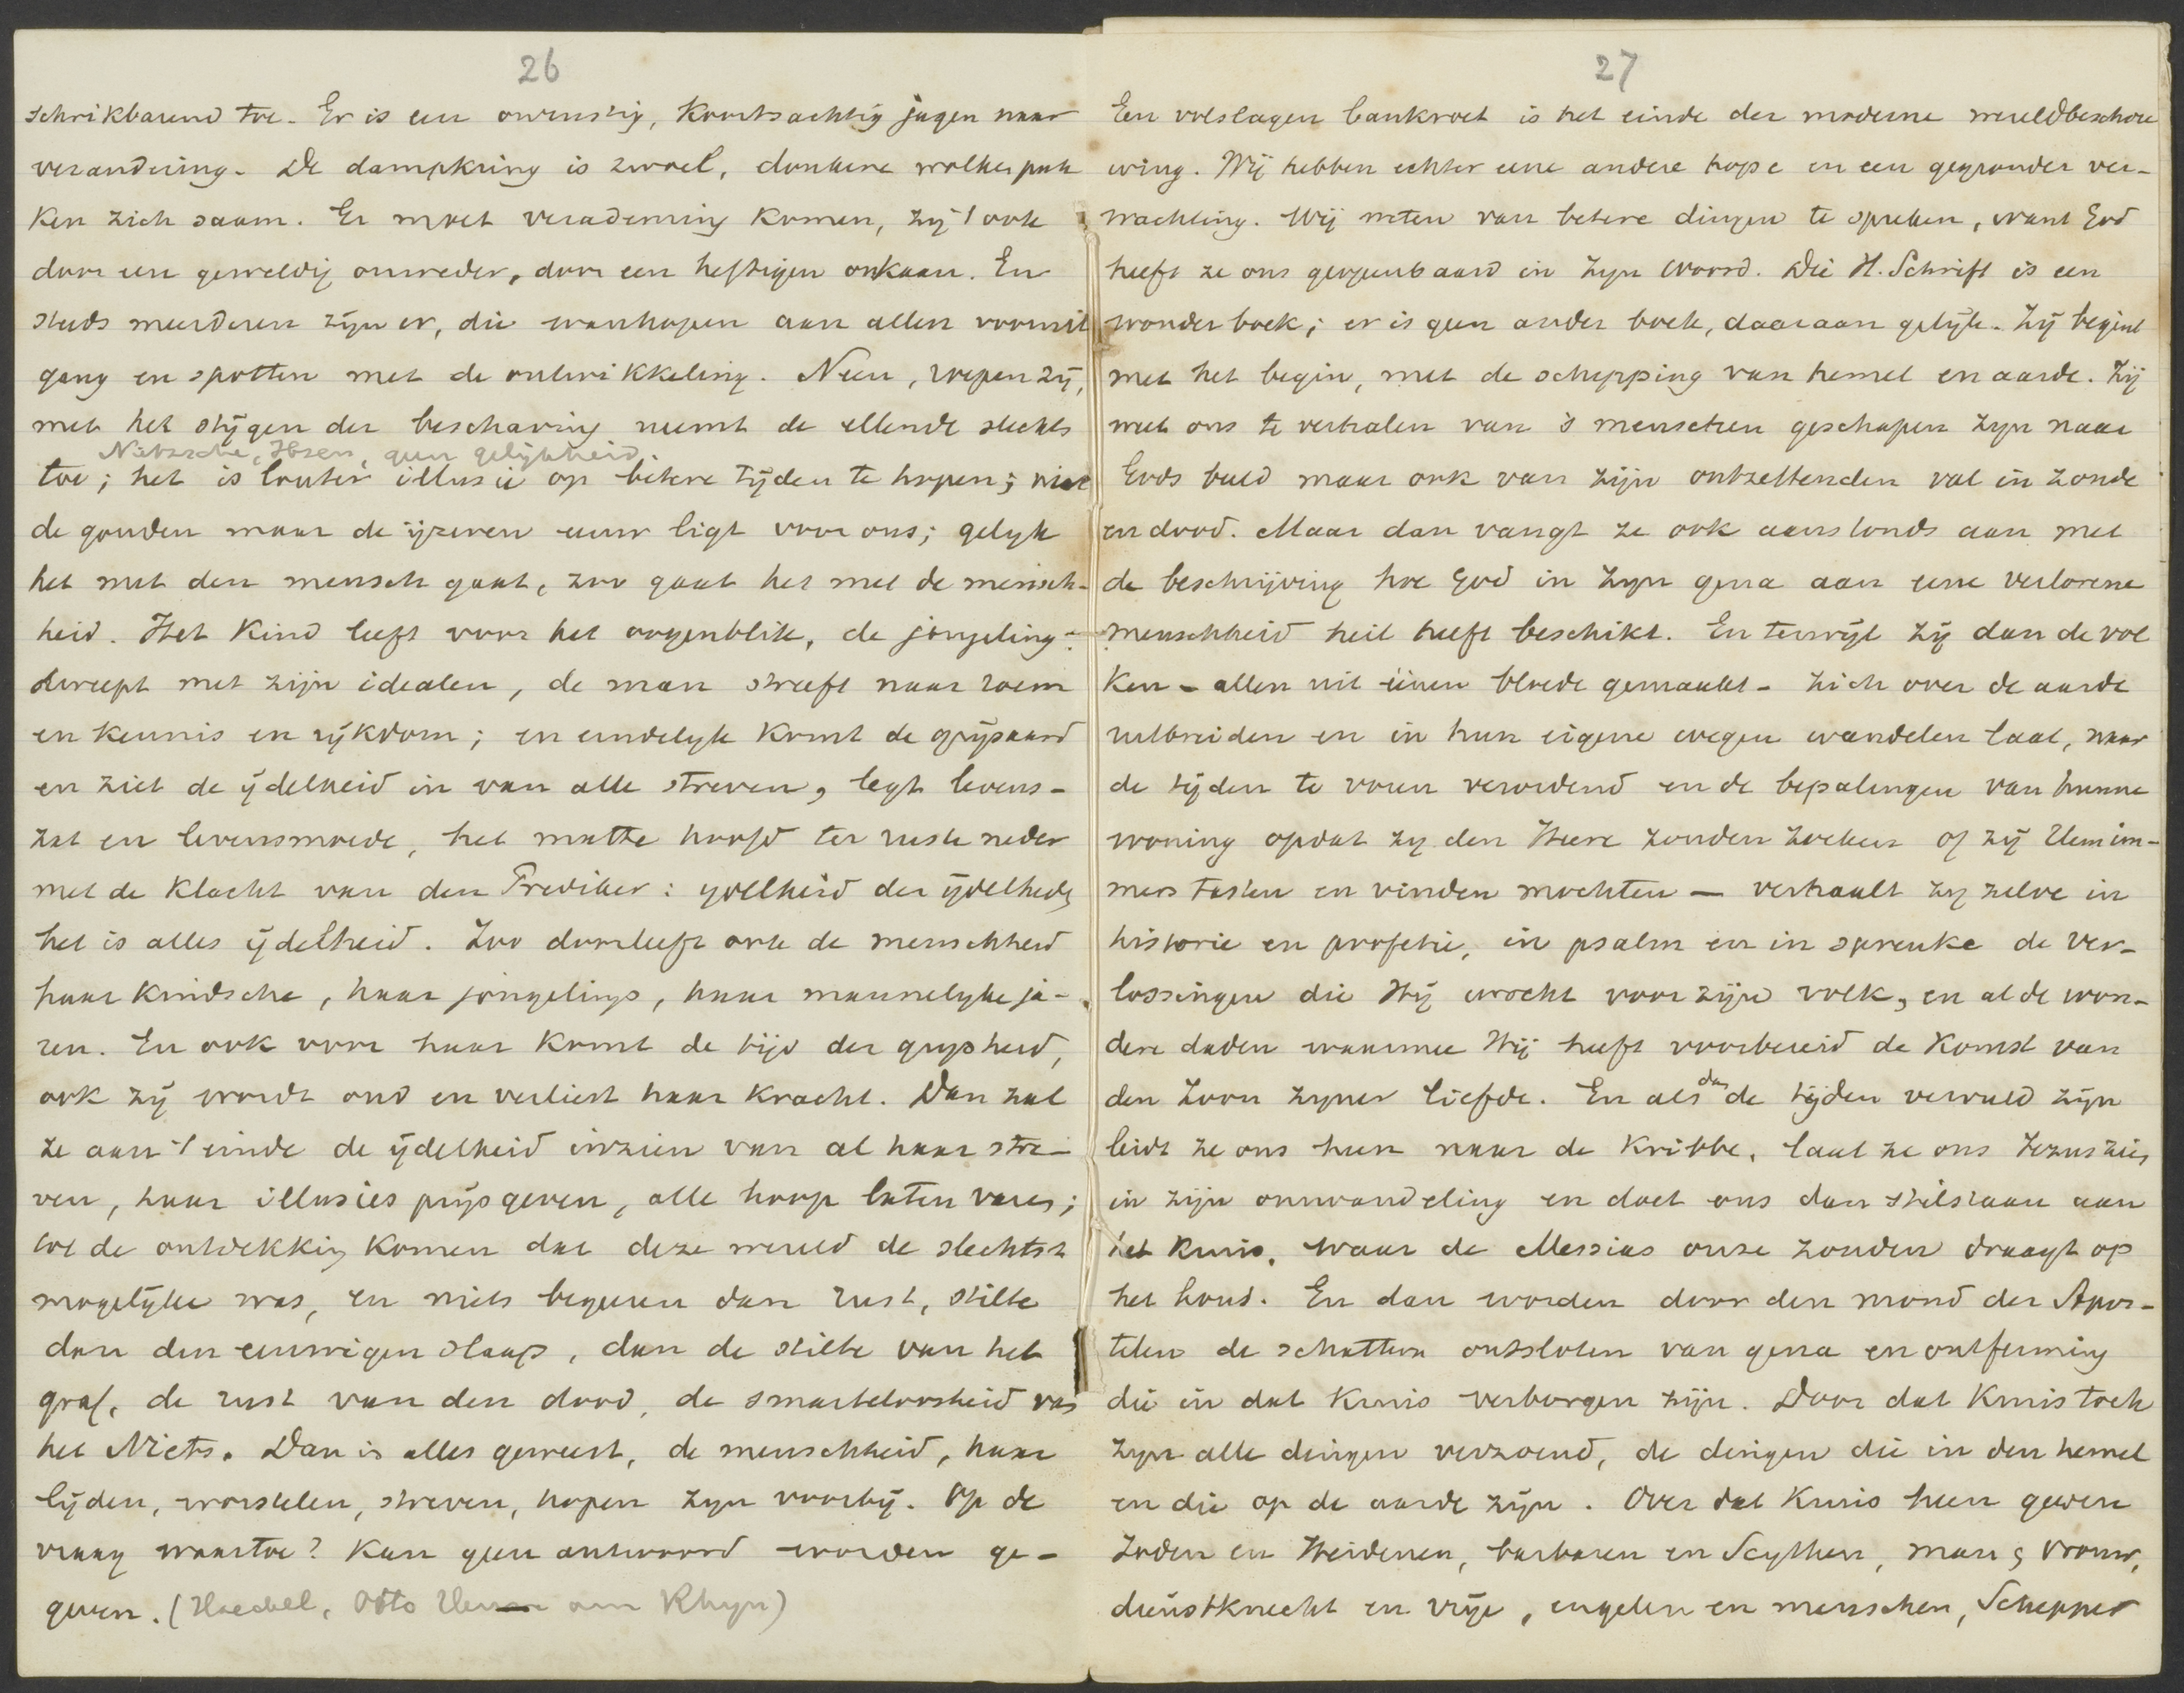 26
schrikbarend toe. Er is een onrustig, koortsachtig jagen naar
verandering. De dampkring is zwoel, donkere wolken pak
ken zich saam. Er moet verademing komen, zij 't ook
door een geweldig onweder, door een heftigen orkaan. En
steeds meerderen zijn er, die wanhopen aan allen vooruit
gang en spotten met de ontwikkeling. Neen, roepen zij,
met het stijgen der beschaving neemt de ellende slechts
Nietzsche, Ibsen, geen gelijkheid.
toe; het is louter illusie op betere tijden te hopen; niet
de gouden maar de ijzeren eeuw ligt voor ons; gelijk
het met den mensch gaat, zoo gaat het met de mensch-
heid. Het kind leeft voor het oogenblik, de jongeling
dweept met zijn idealen, de man streeft naar roem
en kennis en rijkdom; en eindelijk komt de grijsaard
en ziet de ijdelheid in van alle streven, legt levens-
zat en levensmoede, het matte hoofd ter ruste neder
met de klacht van den Prediker: ijdelheid der ijdelheden
het is alles ijdelheid. Zoo doorleeft ook de menschheid
haar kindsche, haar jongelings, haar mannelijke ja-
ren. En ook voor haar komt de tijd der grijsheid,
ook zij wordt oud en verliest haar kracht. Dan zal
ze aan 't einde de ijdelheid inzien van al haar stre-
ven, haar illusies prijsgeven, alle hoop laten varen;
tot de ontdekking komen dat deze wereld de slechtst
mogelijke was, en niets begeeren dan rust, stilte
dan den eeuwigen slaap, dan de stilte van het
graf, de rust van den dood, de smarteloosheid van
het Niets. Dan is alles geweest, de menschheid, haar
lijden, worstelen, streven, hopen zijn voorbij. Op de
vraag waartoe? kan geen antwoord worden ge-
geven. (Haeckel, Otto Henne am Rhyn)
27
Een volslagen bankroet is het einde der moderne wereldbeschou
wing. Wij hebben echter eene andere hope en een gegronder ver-
wachting. Wij weten van betere dingen te spreken, want God
heeft ze ons geopenbaard in zijn Woord. Die H. Schrift is een
wonderboek; er is geen ander boek, daaraan gelijk. Zij begint
met het begin, met de schepping van hemel en aarde. Zij
weet ons te verhalen van 's menschen geschapen zijn naar
Gods beeld maar ook van zijn ontzettenden val in zonde
en dood. Maar dan vangt ze ook aanstonds aan met
de beschrijving hoe God in zijn gena aan eene verlorene
menschheid heil heeft beschikt. En terwijl zij dan de vol
ken - allen uit éénen bloede gemaakt - zich over de aarde
uitbreiden en in hun eigene wegen wandelen laat, naar
de tijden te voren verordend en de bepalingen van hunne
woning opdat zij den Heere zouden zoeken of zij Hem im-
mers tasten en vinden mochten — verhaalt zij zelve in
historie en profetie, in psalm en in spreuke de ver-
lossingen die Hij wrocht voor zijn volk, en al de won-
dere daden waarmee Hij heeft voorbereid de komst van
den Zoon zijner liefde. En als dan de tijden vervuld zijn
leidt ze ons heen naar de kribbe, laat ze ons Jezus zien
in zijn omwandeling en doet ons dan stilstaan aan
het kruis, waar de Messias onze zonden draagt op
het hout. En dan worden door den mond der Apos-
telen de schatten ontsloten van gena en ontferming
die in dat kruis verborgen zijn. Door dat kruis toch
zijn alle dingen verzoend, de dingen die in den hemel
en die op de aarde zijn. Over dat kruis heen geven
Joden en Heidenen, barbaren en Scythen, man en vrouw,
dienstknecht en vrije, engelen en menschen, Schepper